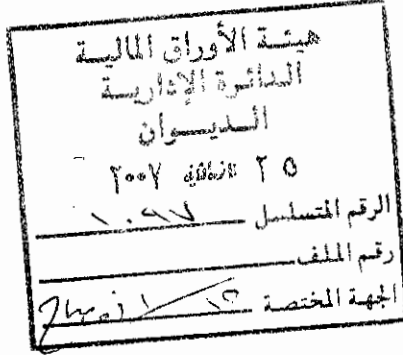 هيئة الأوراق المالية
الدائرة الإدارية
الديوان
٢٥ ٢٠٠٧
الرقم المتسلسل ١٠٩٧
رقم الملف
الجهة المختصة ١٢/١